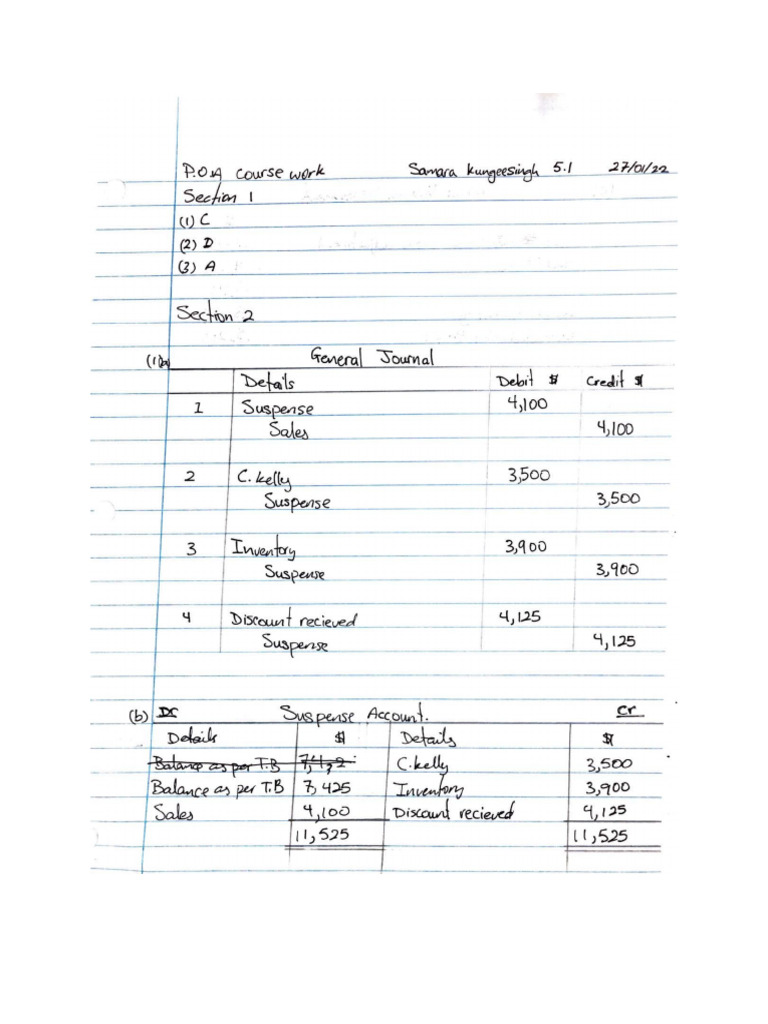 P.O.A course work Samara Kungeesingh 5.1 27/01/22
Section 1
(1) C
(2) D
(3) A
Section 2
(1)(a) General Journal
Details Debit $ Credit $
1 Suspense 4,100
Sales 4,100
2 C.kelly 3,500
Suspense 3,500
3 Inventory 3,900
Suspense 3,900
4 Discount recieved 4,125
Suspense 4,125
(b) Dr Suspense Account. Cr
Details $ Details $
Balance as per T.B C.kelly 3,500
Balance as per T.B 7,425 Inventory 3,900
Sales 4,100 Discount recieved 4,125
11,525 11,525